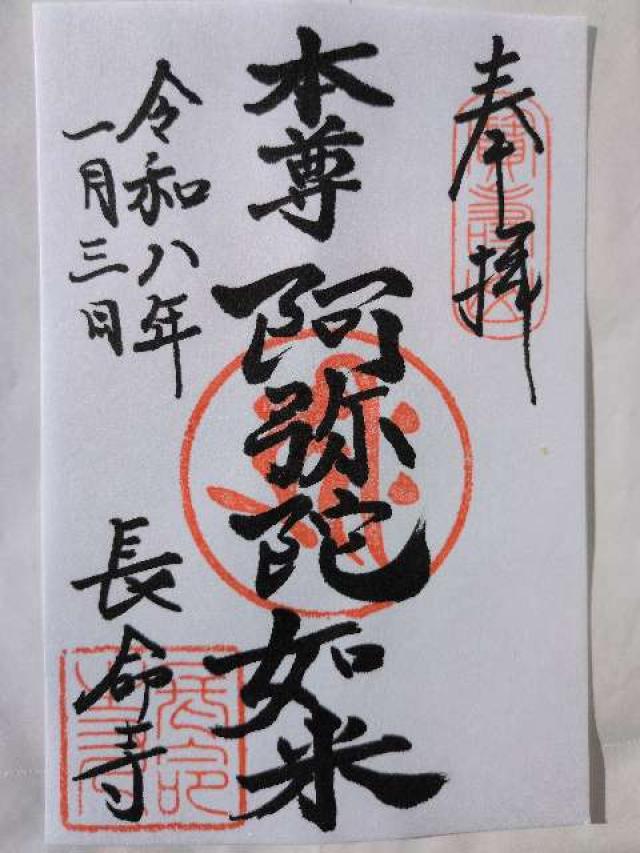 奉拝
本尊 阿弥陀如来
令和八年
一月三日
長命寺